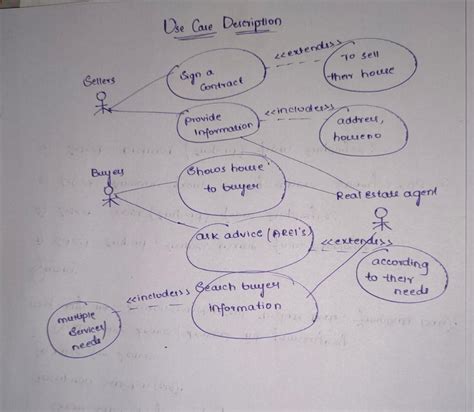 Use Case Description
Sellers
Sign a
Contract
<<extends>>
To sell
their house
Provide
Information
<<includes>>
address,
houseno
Buyers
Shows house
to buyer
Real Estate agent
ask advice (AREI's)
<<extends>>
according
to their
needs
Search buyer
Information
<<includes>>
multiple
Services/
needs